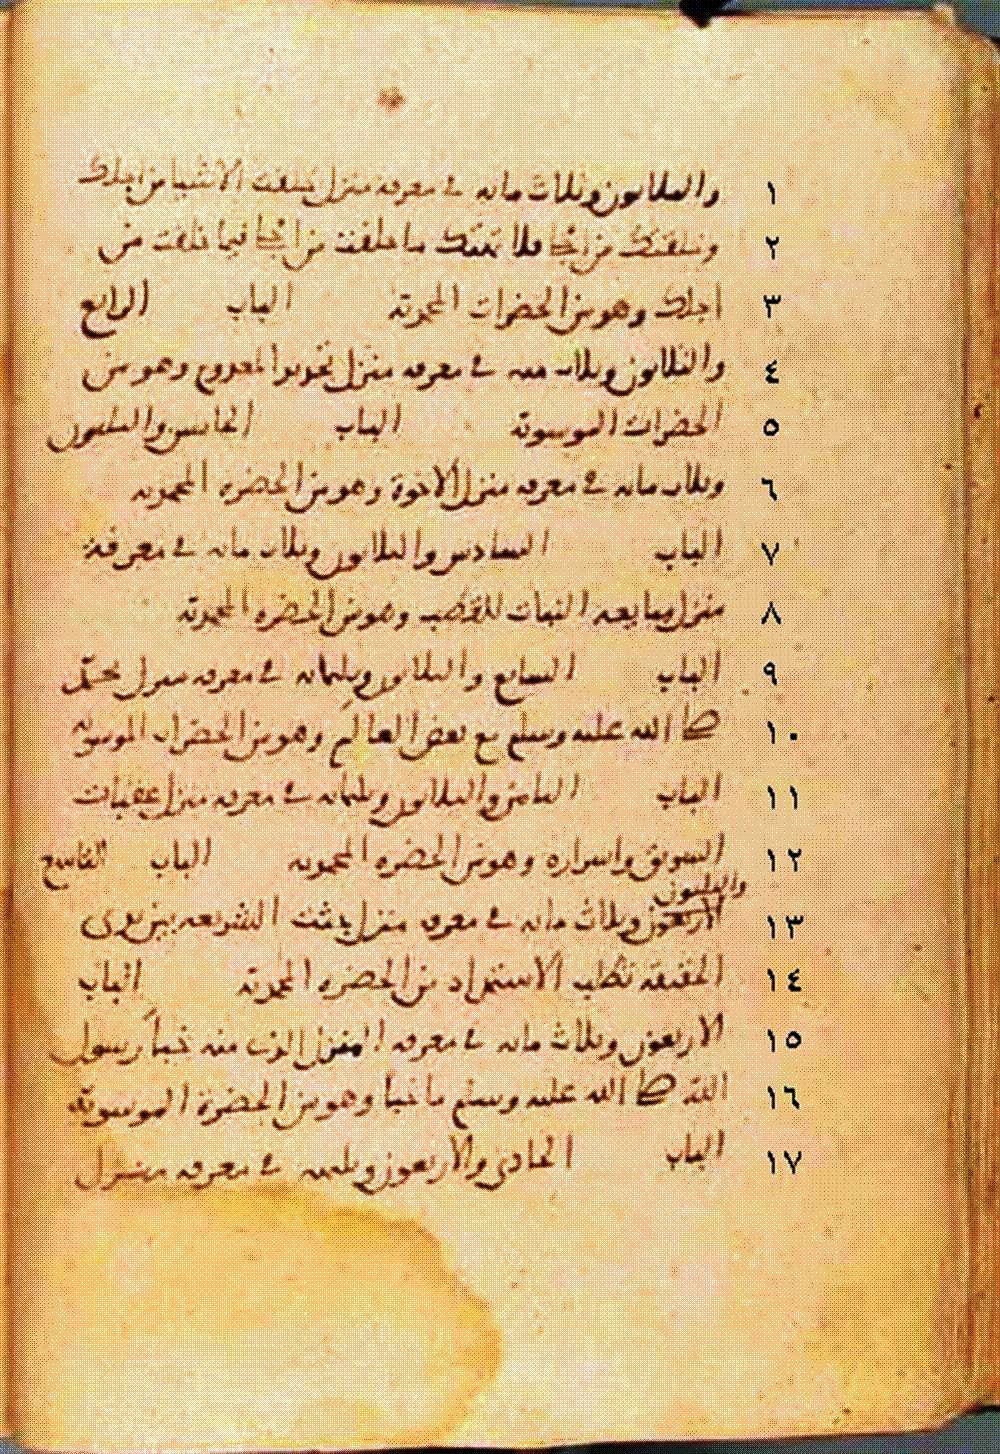 ١ والثلاثون وثلاث مائة في معرفة منزل خلقت الأشيا من اجلك
٢ وخلقتك من اجلي فلا تهتك ما خلقت من اجلي فيما خلقت من
٣ اجلك وهو من الحضرات المحمدية الباب الرابع
٤ والثلاثون وثلاث مية في معرفة منزل تجديد المعدوم وهو من
٥ الحضرات الموسوية الباب الخامس والثلثون
٦ وثلاث مائة في معرفة منزل الاخوة وهو من الحضرة المحمدية
٧ الباب السادس والثلاثون وثلاث مائة في معرفة
٨ منزل مبايعة النبات للقطب وهو من الحضرة المحمدية
٩ الباب السابع والثلاثون وثلثماية في معرفة منزل محمد
١٠ صلى الله عليه وسلم مع بعض العالم وهو من الحضرات الموسوية
١١ الباب الثامن والثلاثون وثلثماية في معرفة منزل عقبات
١٢ السويق واسراره وهو من الحضرة المحمدية الباب التاسع
والثلثون
١٣ الاربعون وثلاث مائة في معرفة منزل جثت الشريعة بين يدى
١٤ الحقيقة تطلب الاستمداد من الحضرة المحمدية الباب
١٥ الاربعون وثلاث مائة في معرفة المنزل الذى منه خبأ رسول
١٦ الله صلى الله عليه وسلم ما خبأ وهو من الحضرة الموسوية
١٧ الباب الحادى والاربعون وثلثمية في معرفة منزل